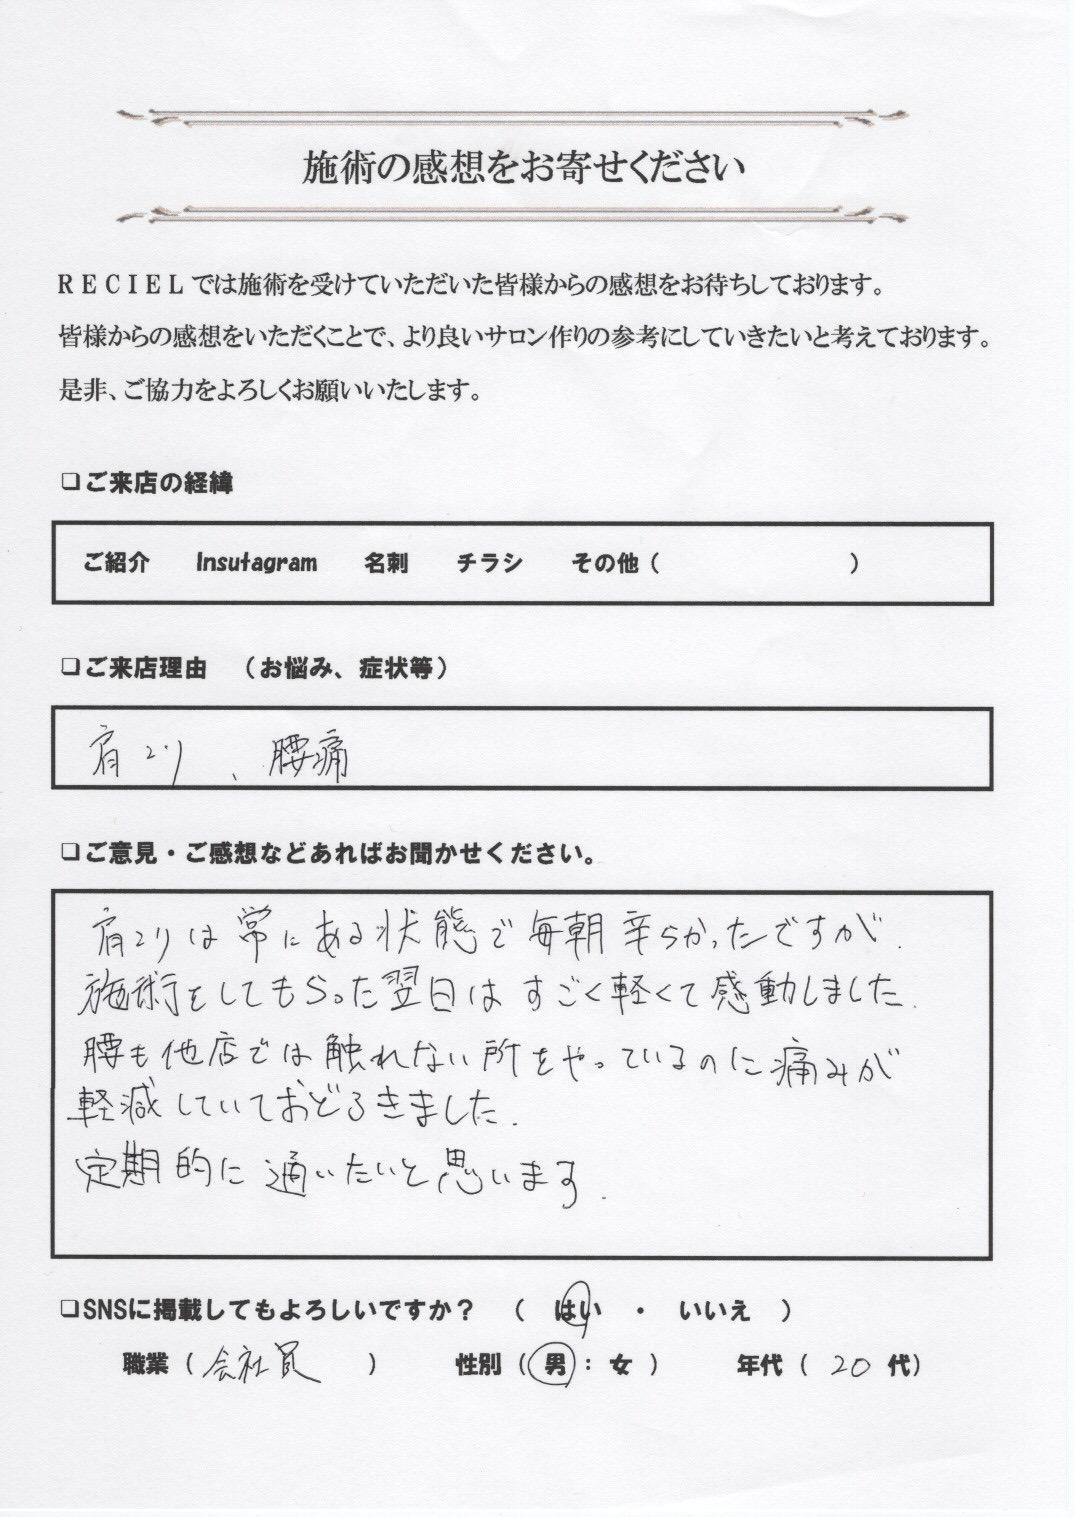 施術の感想をお寄せください
RECIELでは施術を受けていただいた皆様からの感想をお待ちしております。
皆様からの感想をいただくことで、より良いサロン作りの参考にしていきたいと考えております。
是非、ご協力をよろしくお願いいたします。
❏ご来店の経緯
ご紹介 Insutagram 名刺 チラシ その他（ ）
❏ご来店理由 （お悩み、症状等）
肩こり、腰痛
❏ご意見・ご感想などあればお聞かせください。
肩こりは常にある状態で毎朝辛らかったですが.
施術をしてもらった翌日はすごく軽くて感動しました.
腰も他店では触れない所をやっているのに痛みが
軽減していておどろきました.
定期的に通いたいと思います.
❏SNSに掲載してもよろしいですか？ （ はい ・ いいえ ）
職業（会社員 ） 性別（男：女） 年代（20代）